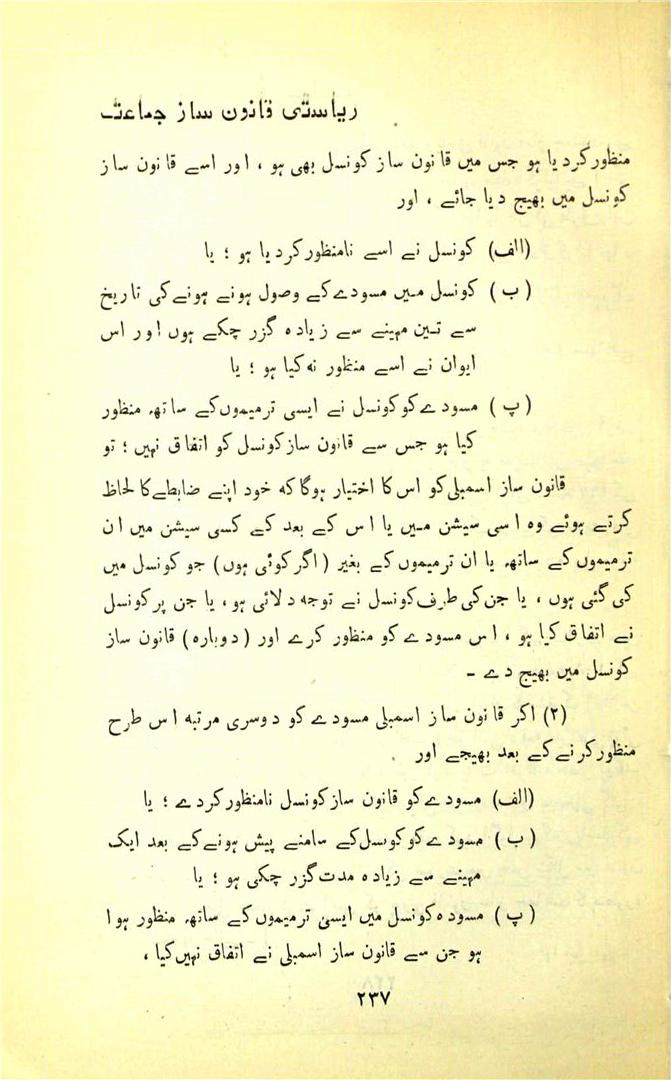 ریاستی قانون ساز جماعت
منظور کر دیا ہو جس میں قانون ساز کونسل بھی ہو ، اور اسے قانون ساز
کونسل میں بھیج دیا جائے ، اور
(الف) کونسل نے اسے نامنظور کر دیا ہو ؛ یا
(ب) کونسل میں مسودے کے وصول ہونے ہونے کی تاریخ
سے تین مہینے سے زیادہ گزر چکے ہوں اور اس
ایوان نے اسے منظور نہ کیا ہو ؛ یا
(پ) مسودے کو کونسل نے ایسی ترمیموں کے ساتھ منظور
کیا ہو جس سے قانون ساز کونسل کو اتفاق نہیں ؛ تو
قانون ساز اسمبلی کو اس کا اختیار ہوگا کہ خود اپنے ضابطے کا لحاظ
کرتے ہوئے وہ اسی سیشن میں یا اس کے بعد کے کسی سیشن میں ان
ترمیموں کے ساتھ یا ان ترمیموں کے بغیر (اگر کوئی ہوں) جو کونسل میں
کی گئی ہوں ، یا جن کی طرف کونسل نے توجہ دلائی ہو ، یا جن پر کونسل
نے اتفاق کیا ہو ، اس مسودے کو منظور کرے اور (دوبارہ) قانون ساز
کونسل میں بھیج دے ۔
(۲) اکر قانون ساز اسمبلی مسودے کو دوسری مرتبہ اس طرح
منظور کرنے کے بعد بھیجے اور
(الف) مسودے کو قانون ساز کونسل نامنظور کردے ؛ یا
(ب) مسودے کو کونسل کے سامنے پیش ہونے کے بعد ایک
مہینے سے زیادہ مدت گزر چکی ہو ؛ یا
(پ) مسودہ کونسل میں ایسی ترمیموں کے ساتھ منظور ہوا
ہو جن سے قانون ساز اسمبلی نے اتفاق نہیں کیا ،
۲۳۷